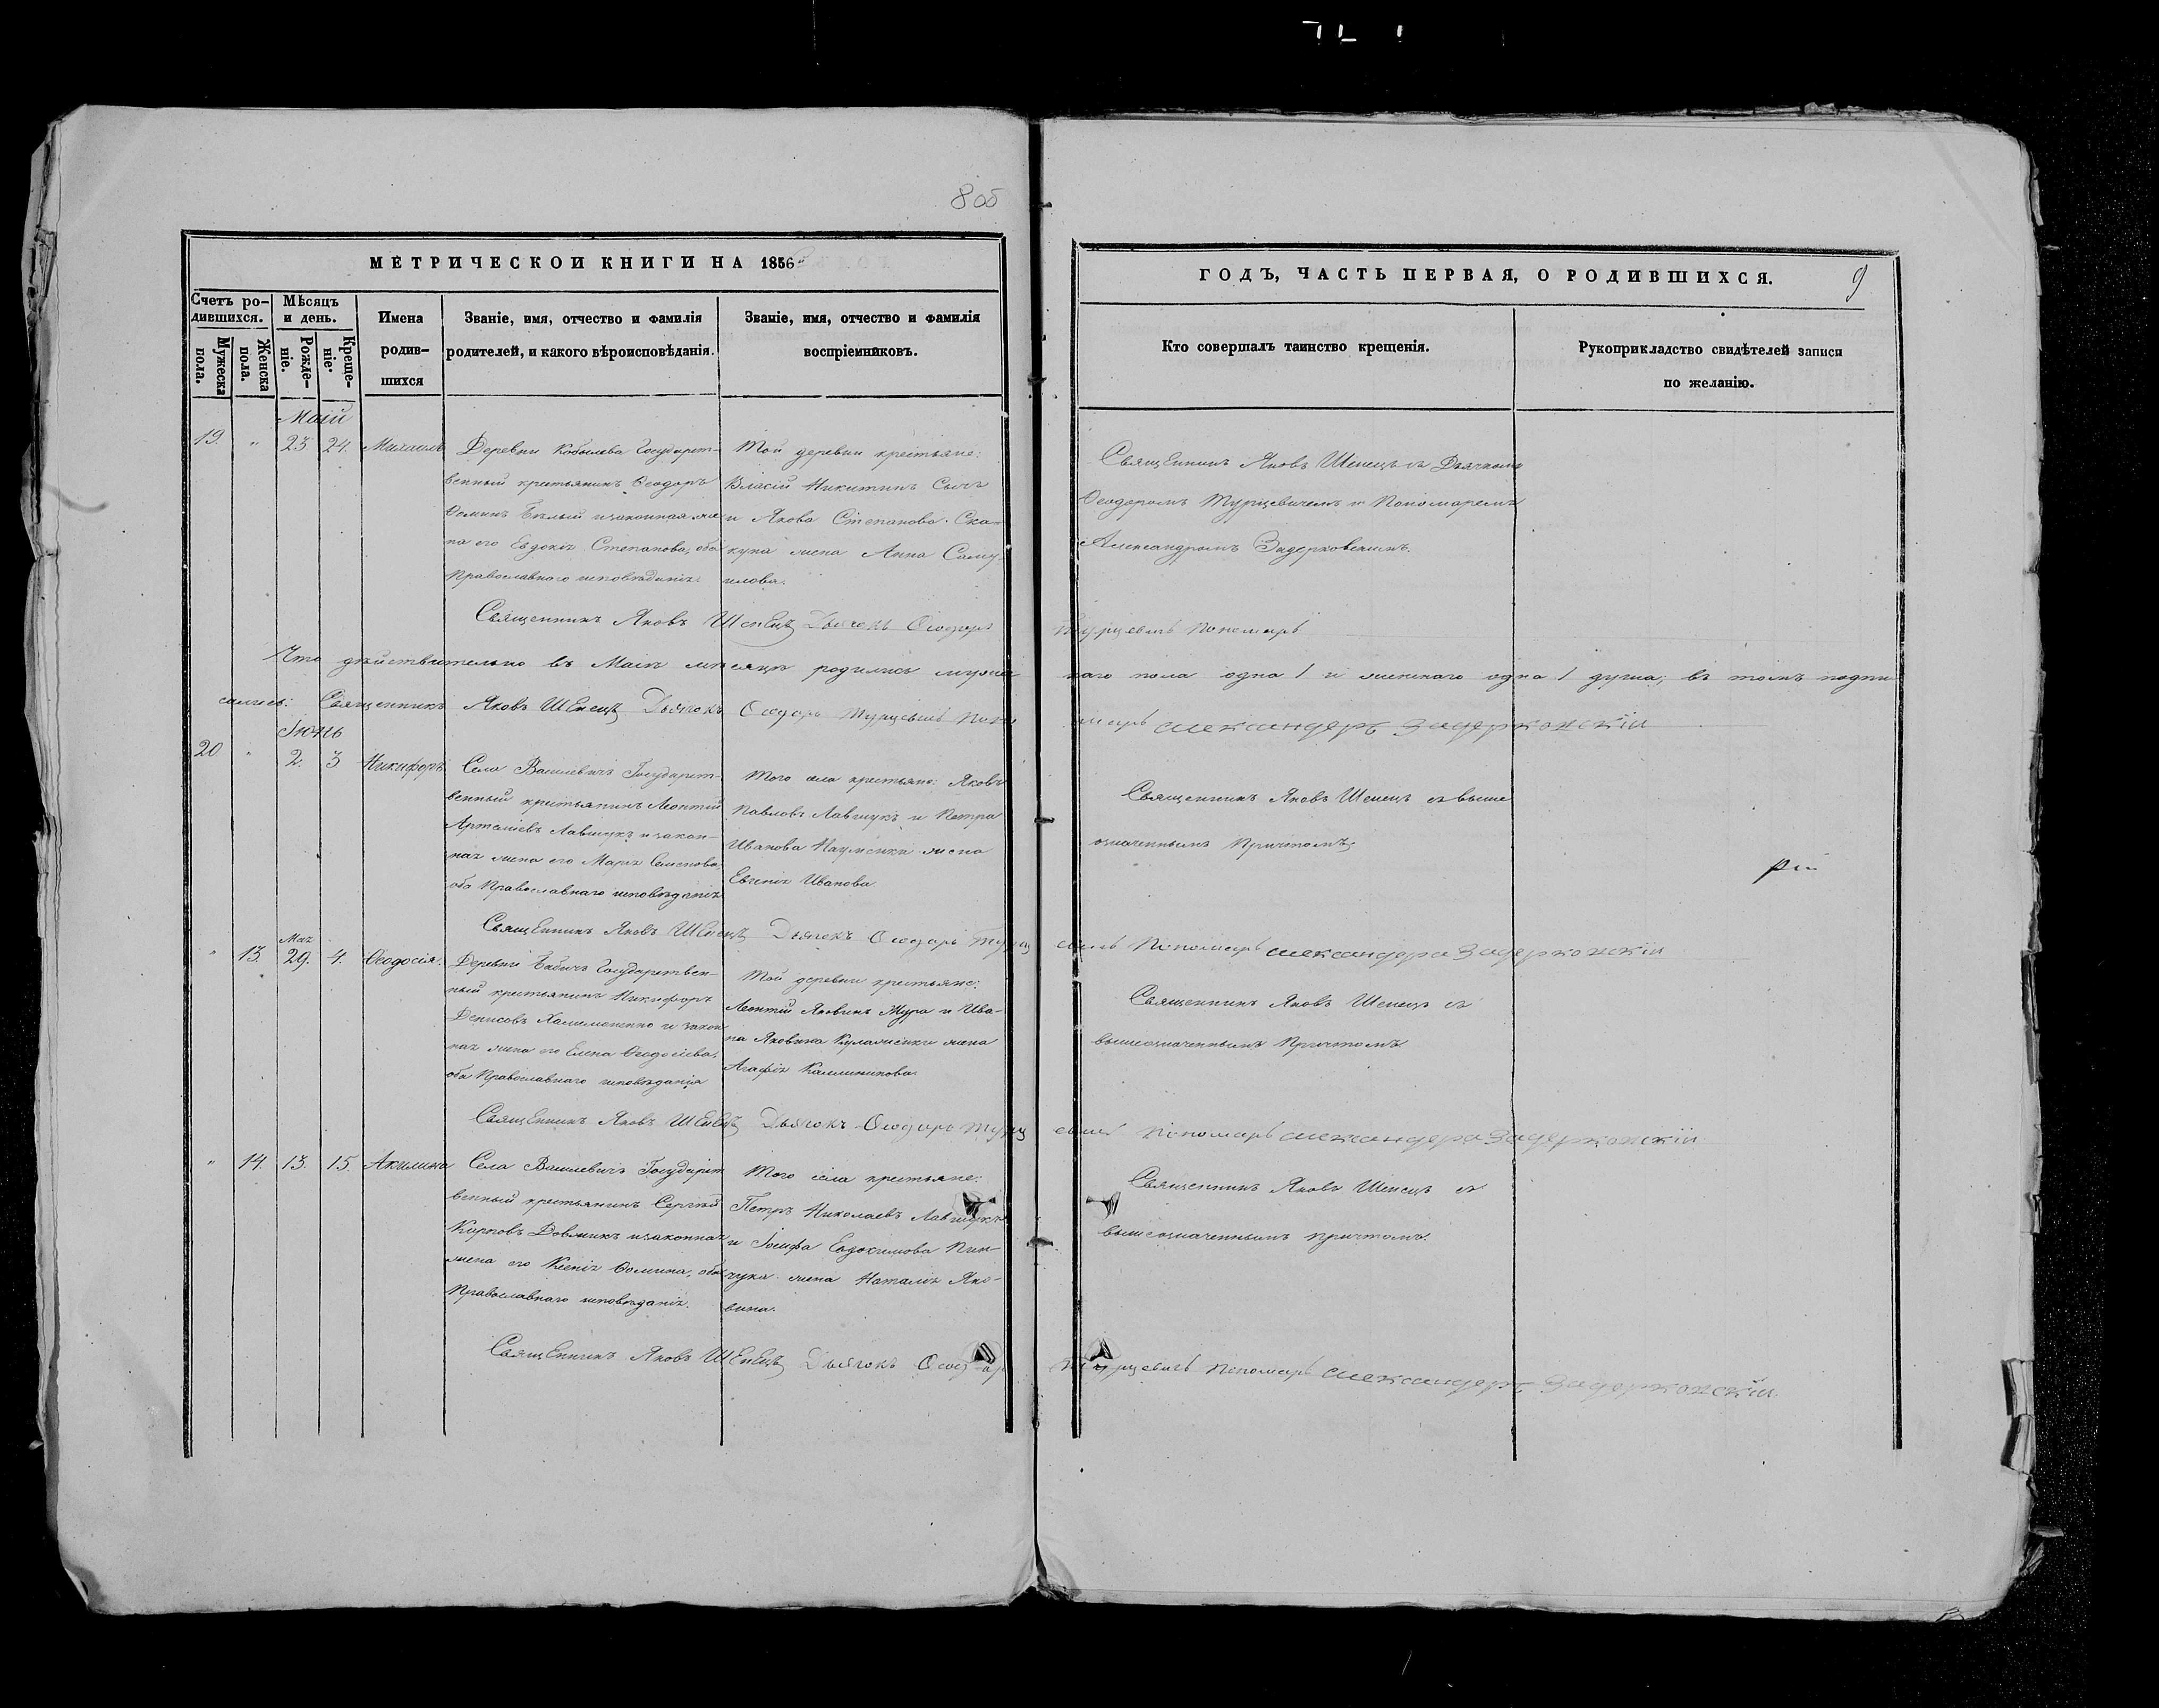 8 об
МЕТРИЧЕСКОЙ КНИГИ НА 1856
Счетъ ро-
дившихся.
Мужеска
пола.
Женска
пола.
Мѣсяцъ
и день.
Рожде-
ніе.
Креще-
ніе.
Имена
родив-
шихся
Званіе, имя, отчество и фамилія
родителей, и какого вѣроисповѣданія.
Званіе, имя, отчество и фамилія
воспріемниковъ.
ГОДЪ, ЧАСТЬ ПЕРВАЯ, О РОДИВШИХСЯ.
9
Кто совершалъ таинство крещенія.
Рукоприкладство свидѣтелей записи
по желанію.
Маій
19. " 23 24. Михаилъ
Деревни Кобылева Государст-
венный крестьянинъ Ѳеодоръ
Ѳоминъ Бѣлый и законная же-
на его Евдокія Степанова, оба
Православнаго исповѣданія.
Той деревни крестьяне:
Власій Никитинъ Сычъ
и Якова Степанова Ска-
куна жена Анна Саму-
илова.
Священникъ Яковъ Шенецъ съ Дьячкомъ
Ѳеодоромъ Турцевичемъ и Пономаремъ
Александромъ Задерковскимъ.
Священникъ Яковъ Шенецъ Дьячокъ Ѳеодоръ Турцевичъ Пономарь
Что дѣйствительно въ Маіи мѣсяцѣ родились мужес-каго пола одна 1 и женскаго одна 1 душа; въ томъ подпи-
сались: Священникъ Яковъ Шенецъ Дьячокъ Ѳеодоръ Турцевичъ Пономарь Александеръ Задерковскій
Іюнь
20 " 2. 3 Никифоръ
Села Василевичъ Государст-
венный крестьянинъ Леонтій
Лавшукъ и закон-
ная жена его Марія Семенова,
оба Православнаго исповѣданія
Того села крестьяне: Яковъ
Павловъ Лавшукъ и Петра
Иванова Науменки жена
Евгенія Иванова.
Священникъ Яковъ Шенецъ съ выше
означеннымъ Причтомъ.
Священникъ Яковъ Шенецъ Дьячокъ Ѳеодоръ Турцевичъ Пономарь Александеръ Задерковскій
Мая
" 13. 29. 4. Ѳеодосія.
Деревни Бабичъ Государствен-
ный крестьянинъ Никифоръ
Денисовъ и закон
ная жена его Елена Ѳеодосіева,
оба Православнаго исповѣданія
Той деревни крестьяне:
Леонтій Яковинъ Жура и Ива-
на Яковина жена
Агафія Каллиникова.
Священникъ Яковъ Шенецъ съ
вышеозначеннымъ Причтомъ.
Священникъ Яковъ Шенецъ Дьячокъ Ѳеодоръ Турцевичъ Пономарь Александеръ Задерковскій
" 14. 13. 15 Акилина
Села Василевичъ Государст
венный крестьянинъ Сергѣй
Карповъ и законная
жена его Ксенія Ѳомина, оба
Православнаго исповѣданія.
Того села крестьяне:
Петръ Николаевъ Лавшукъ
и Іосифа Евдокимова Пин-
чука жена Наталія Яко-
вина.
Священникъ Яковъ Шенецъ съ
вышеозначеннымъ причтомъ.
Священникъ Яковъ Шенецъ Дьячокъ Ѳеодоръ Турцевичъ Пономарь Александеръ Задерковскій